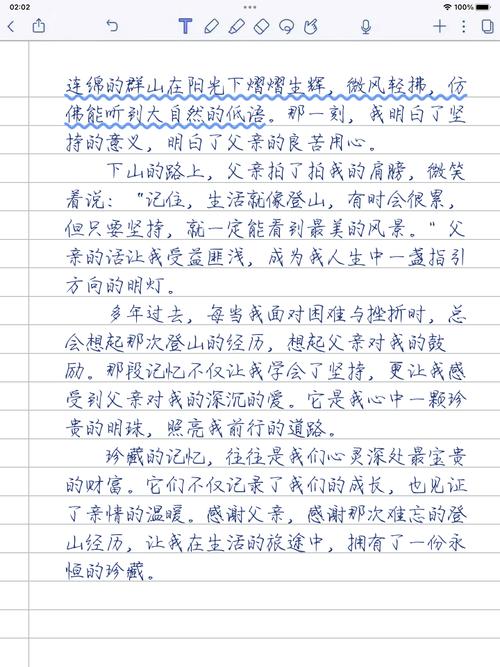 02:02
100%
连绵的群山在阳光下熠熠生辉，微风轻拂，仿
佛能听到大自然的低语。那一刻，我明白了坚
持的意义，明白了父亲的良苦用心。
下山的路上，父亲拍了拍我的肩膀，微笑
着说：“记住，生活就像登山，有时会很累，
但只要坚持，就一定能看到最美的风景。”父
亲的话让我受益匪浅，成为我人生中一盏指引
方向的明灯。
多年过去，每当我面对困难与挫折时，总
会想起那次登山的经历，想起父亲对我的鼓
励。那段记忆不仅让我学会了坚持，更让我感
受到父亲对我的深沉的爱。它是我心中一颗珍
贵的明珠，照亮我前行的道路。
珍藏的记忆，往往是我们心灵深处最宝贵
的财富。它们不仅记录了我们的成长，也见证
了亲情的温暖。感谢父亲，感谢那次难忘的登
山经历，让我在生活的旅途中，拥有了一份永
恒的珍藏。